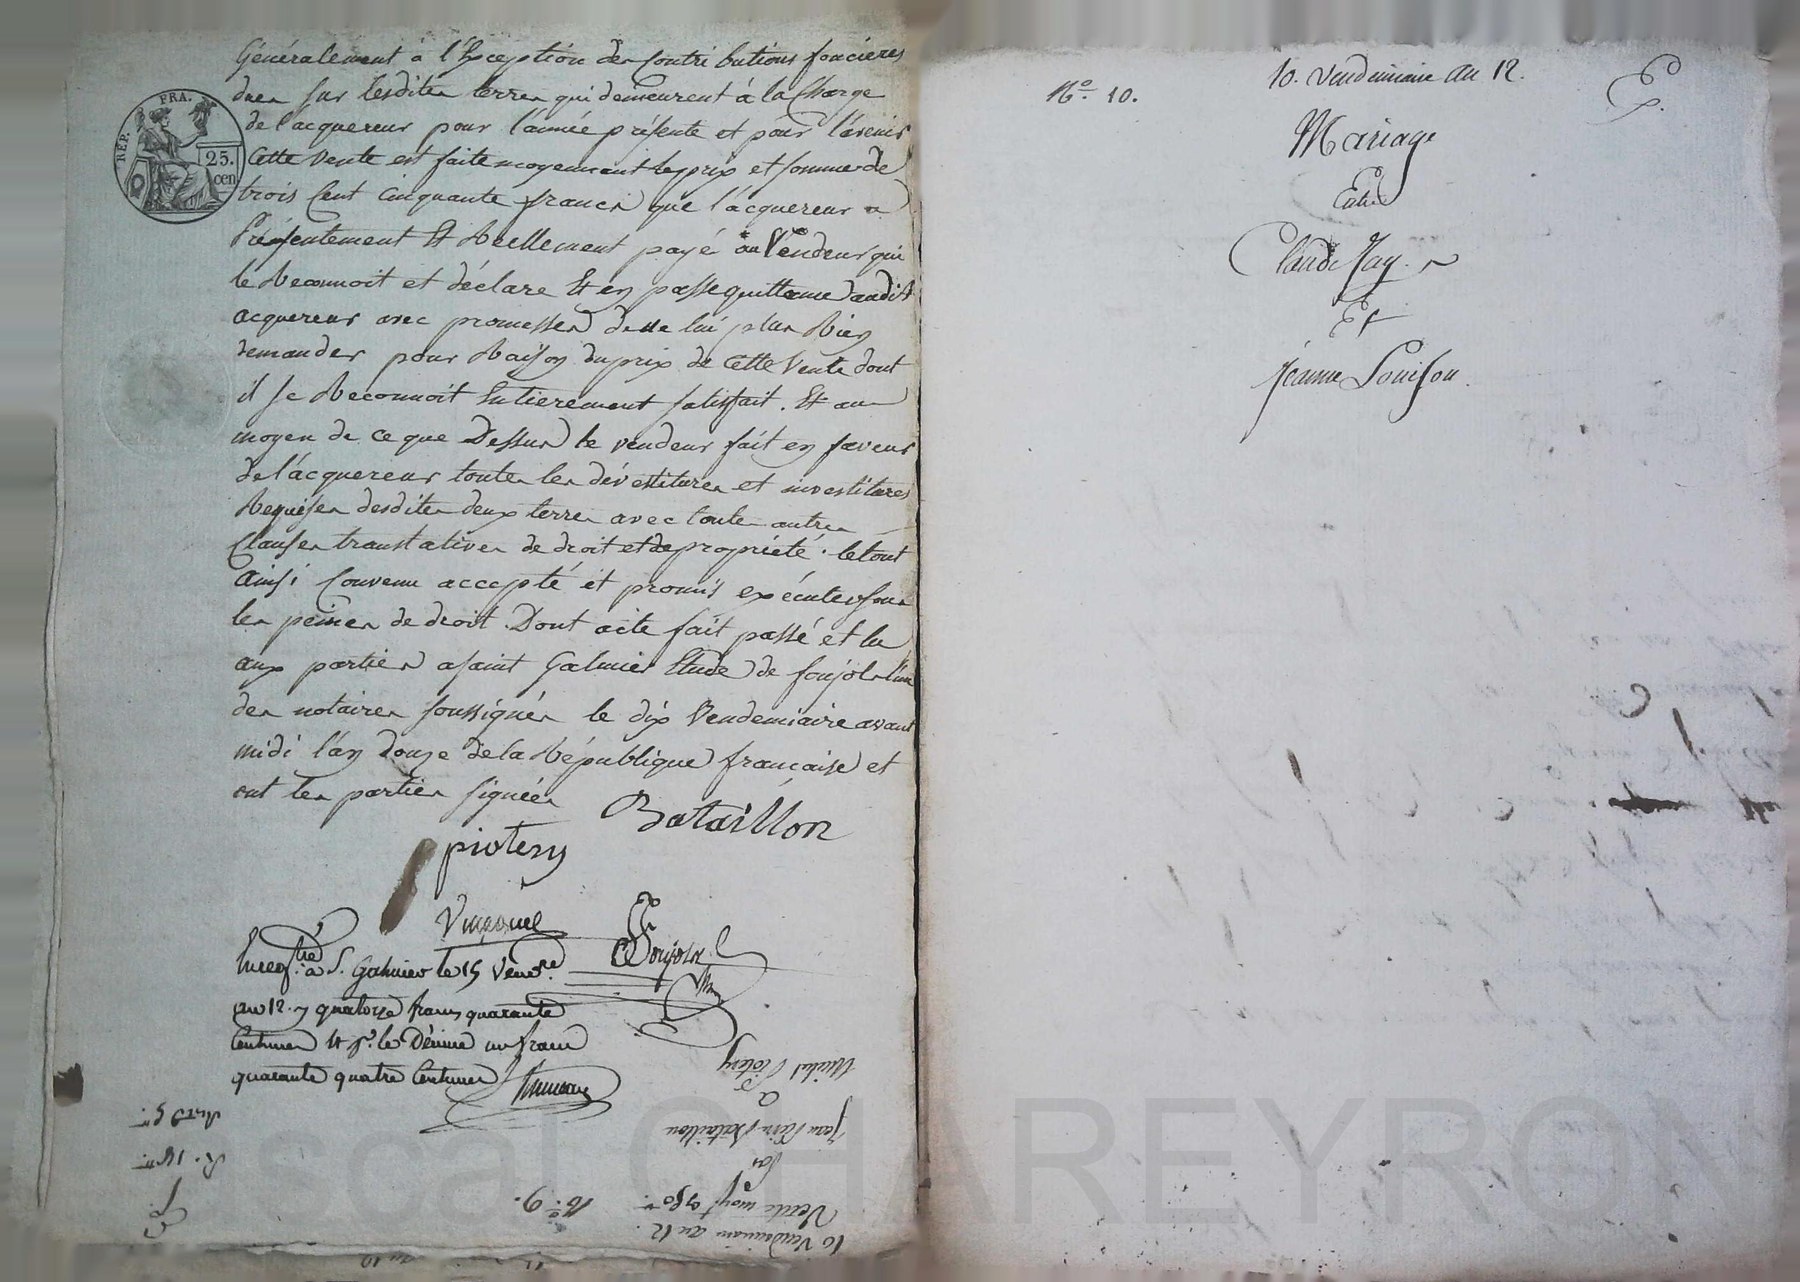 Généralement à l'Exception des Contributions foncières
dues sur lesdites terres qui demeurent à la Charge
de l'acquereur pour l'année présente et pour l'avenir
Cette Vente est faite moyennant le prix et somme de
trois Cent Cinquante francs que l'acquereur a
Présentement Et Réellement payé au Vendeur qui
le Reconnoit et déclare Et en passe quittance audit
acquereur avec promesse de ne lui plus Rien
demander pour Raison du prix de Cette Vente dont
il se Reconnoit Entierement satisfait. Et au
moyen de ce que Dessus le vendeur fait en faveur
de l'acquereur toutes les dévestitures et investitures
Requises desdites deux terres avec toutes autres
Clauses translatives de droit et de propriété. le tout
Ainsi Convenu accepté et promis exécuter sous
les peines de droit. Dont acte fait passé et lu
aux parties a saint Galmier Etude de foujols l'un
des notaires soussignés le dix Vendemiaire avant
midi l'an douze de la République française et
ont les parties signées
Bataillon
pioteny
Foujols
Enregistré à S. Galmier le 15 Vend.re
an 12. quatorze francs quarante
Centimes Et pr. le Décime un franc
quarante quatre Centimes
RÉP. FRA.
25. cen
Jean Bataillon
à
Michel
10 Vendemiaire an 12.
Vente
par
No. 9.
Pascal CHAREYRON
No. 10.
10. Vendemiaire an 12.
E.
Mariage
Entre
Claude Jay
Et
Jeanne Louison.